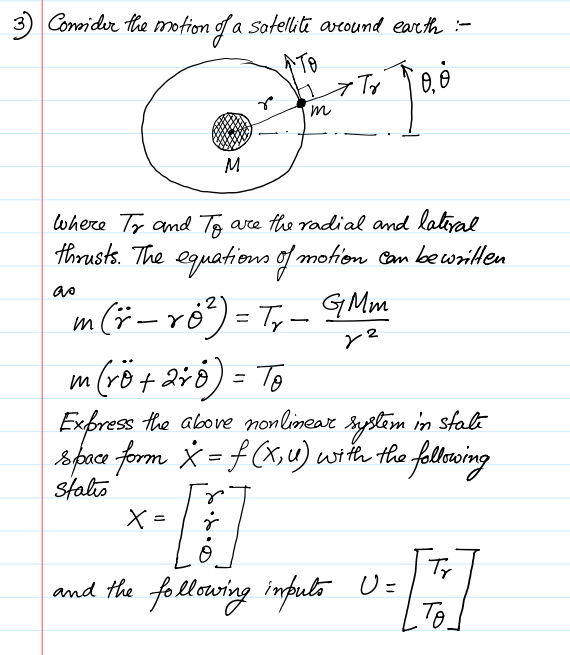 3) Consider the motion of a satellite around earth :-
Tθ
Tr
θ, θ̇
r
m
M
where Tr and Tθ are the radial and lateral
thrusts. The equations of motion can be written
as
m(r̈ − rθ̇²) = Tr − GMm/r²
m(rθ̈ + 2ṙθ̇) = Tθ
Express the above nonlinear system in state
space form Ẋ = f(X, U) with the following
states
X = [r
ṙ
θ̇]
and the following inputs U = [Tr
Tθ]